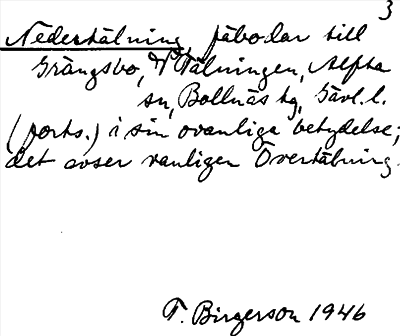 3
Nedertälning, fäbodar till
Grängsbo, Tälningen, Alfta
sn, Bollnäs tg, Gävl. l.
(forts.) i sin ovanliga betydelse;
det avser vanligen Övertälning.
T. Birgerson 1946